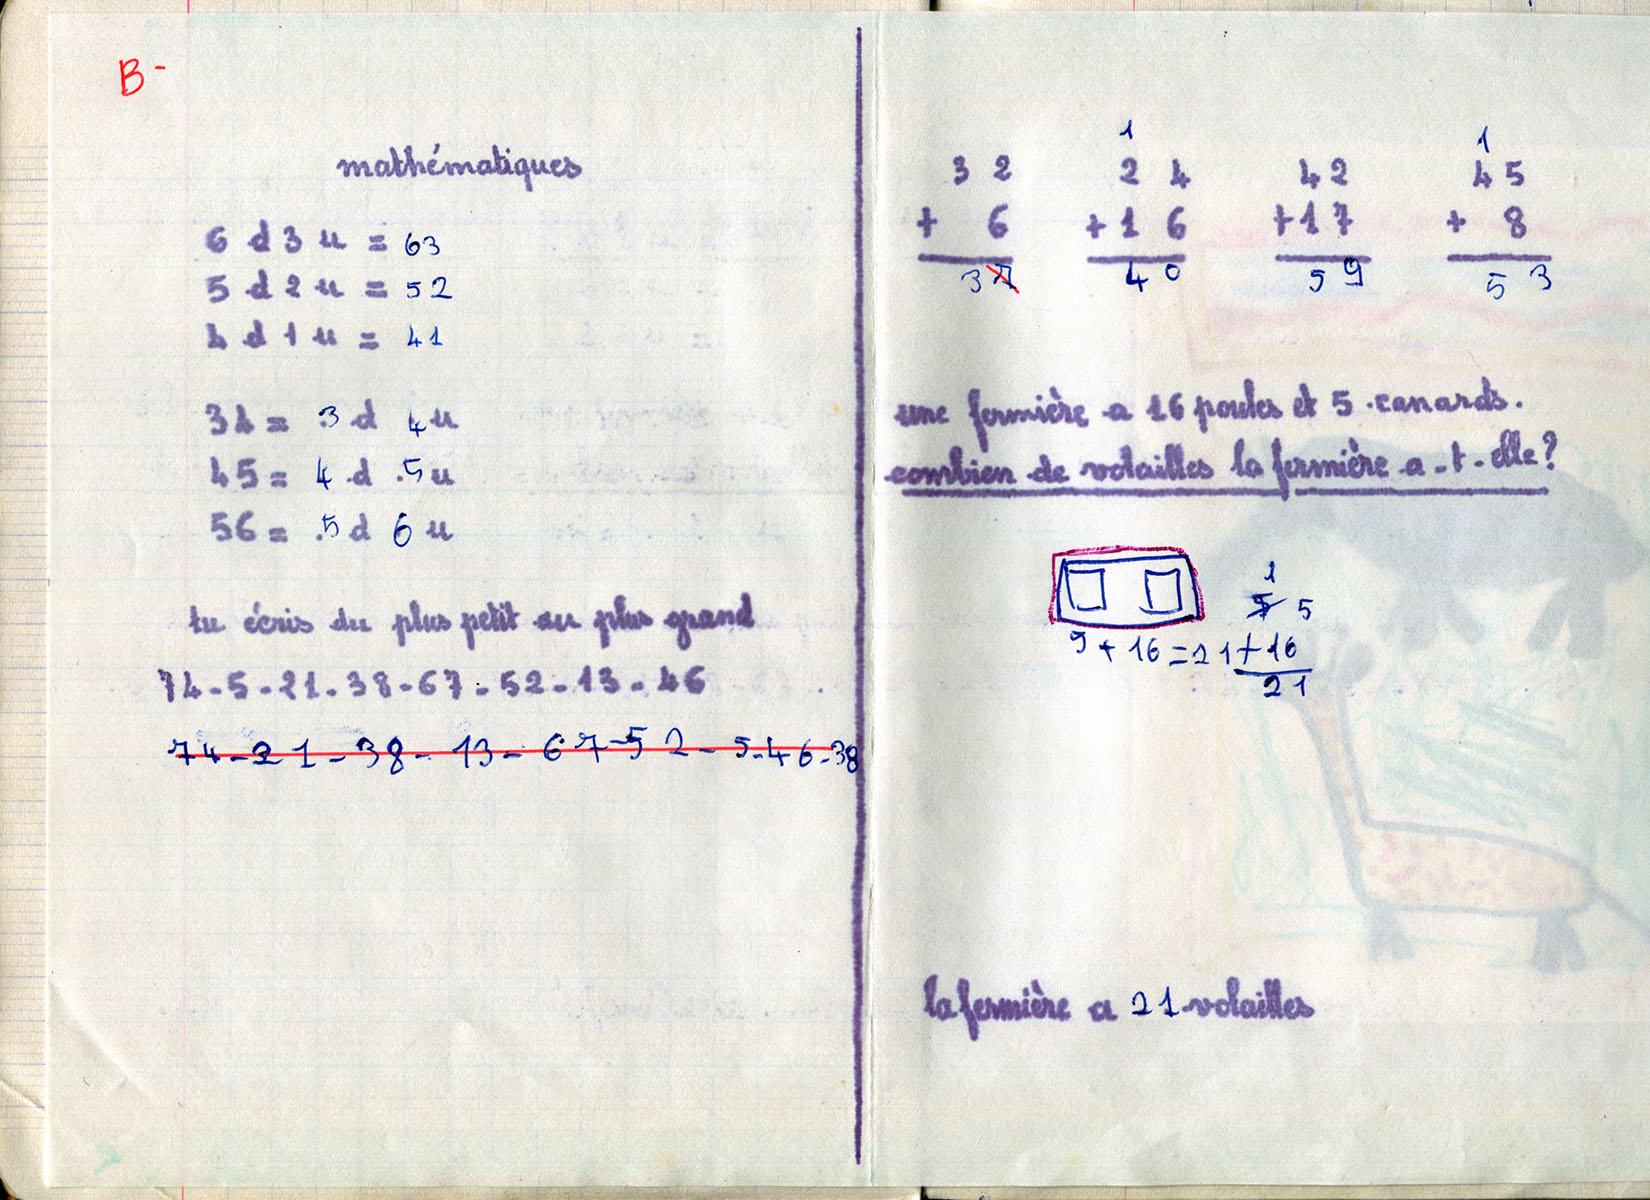 B-
mathématiques
6 d 3 u = 63
5 d 2 u = 52
4 d 1 u = 41
34 = 3 d 4 u
45 = 4 d 5 u
56 = 5 d 6 u
tu écris du plus petit au plus grand
74-5-21-38-67-52-13-46
74-21-38-13-67-52-5-46-38
1 1
32 24 42 45
+ 6 +16 +17 + 8
37 40 59 53
une fermière a 16 poules et 5 canards.
combien de volailles la fermière a-t-elle?
1
5 5
+16
21
+ 16 = 21
la fermière a 21 volailles